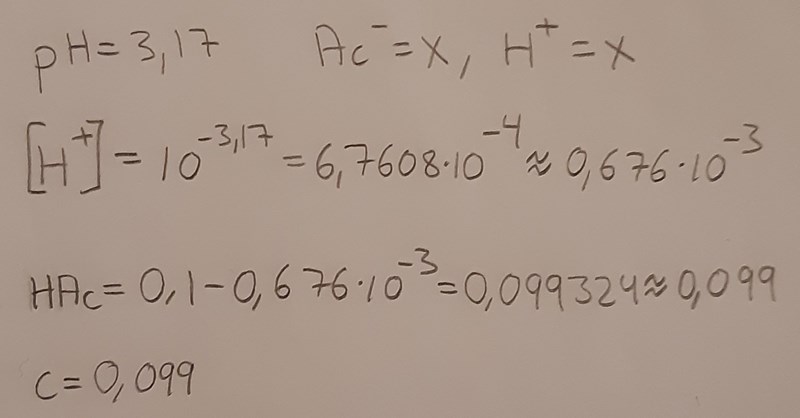 pH = 3,17 Ac⁻ = x, H⁺ = x
[H⁺] = 10⁻³,¹⁷ = 6,7608·10⁻⁴ ≈ 0,676·10⁻³
HAc = 0,1 - 0,676·10⁻³ = 0,099324 ≈ 0,099
c = 0,099